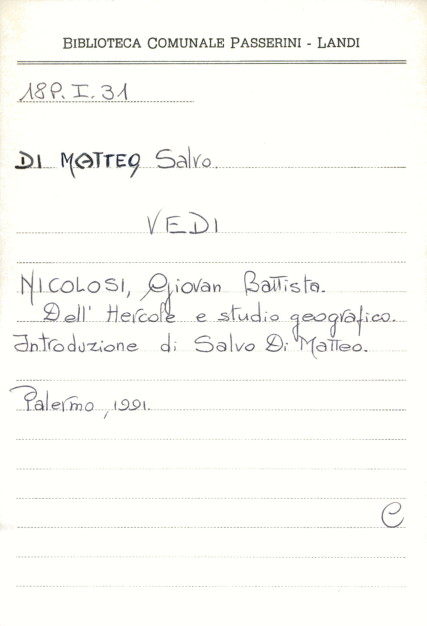 BIBLIOTECA COMUNALE PASSERINI - LANDI
18P. I. 31
DI MATTEO Salvo.
VEDI
NICOLOSI, Giovan Battista.
Dell' Hercole e studio geografico.
Introduzione di Salvo Di Matteo.
Palermo, 1991.
C